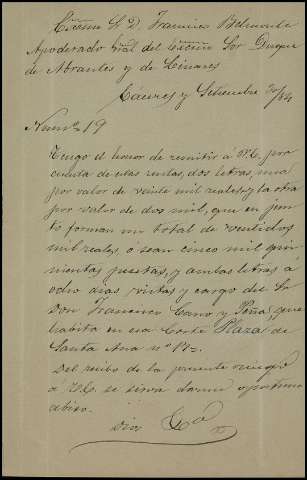 Exmo Sr. D. Francisco Belmonte
Apoderado Gral del Excmo Sor Duque
de Abrantes y de Linares
Cáceres y Setiembre 20/84
Numº 19
Tengo el honor de remitir á V.E, pro
cedente de estas rentas, dos letras, una
por valor de veinte mil reales, y la otra
por valor de dos mil, que en jun
to forman un total de veintidos
mil reales, ó sean cinco mil qui
nientas pesetas, y ambas letras á
ocho dias vistas y cargo del Sr
Don Francisco Cano y Peña, que
habita en esa Corte Plaza de
Santa Ana nº 17=
Del recibo de la presente ruego
á V.E. se sirva darme oportuno
abiso.
Dios &a